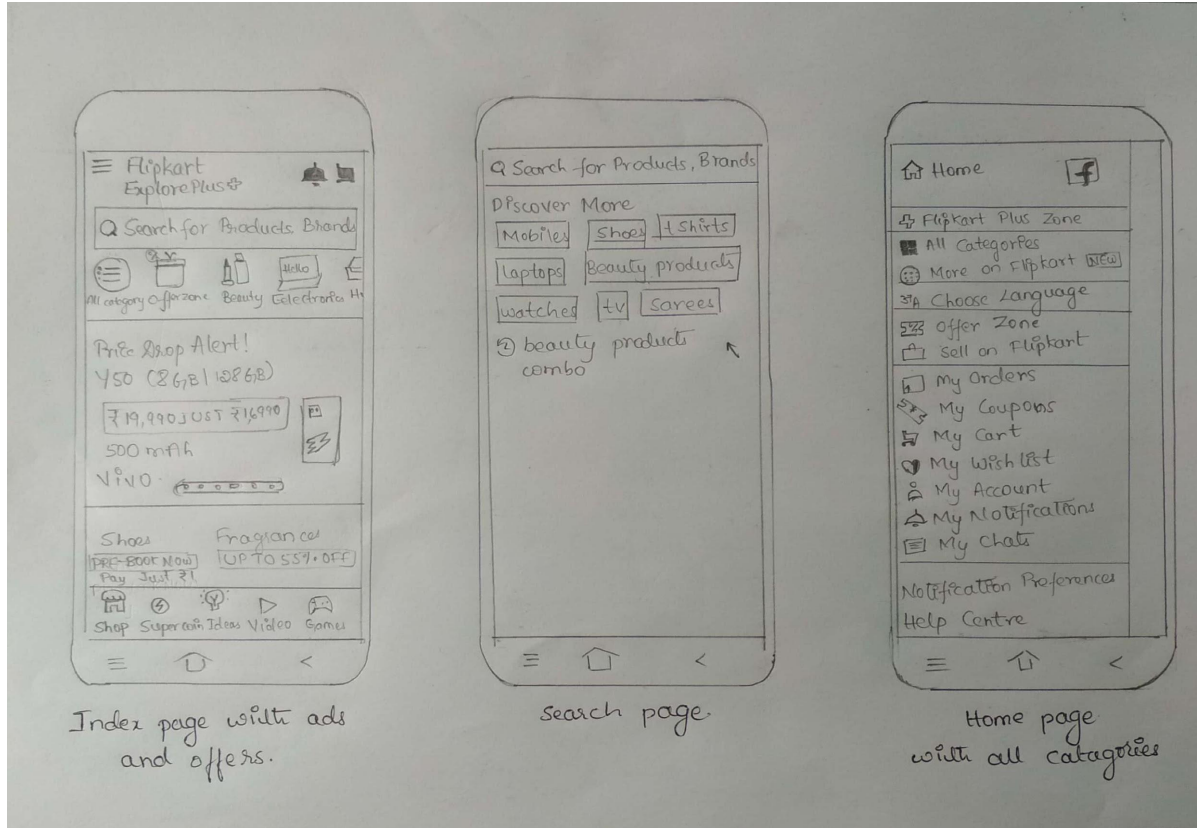 Flipkart
Explore Plus
Search for Products, Brands
All category
Offerzone
Beauty
Eelectronics
Price Drop Alert!
Y50 (8GB|128GB)
₹19,990 JUST ₹16,990
500 mAh
Vivo
Shoes
PRE-BOOK NOW
Pay Just ₹1
Fragrances
UP TO 55% OFF
Shop
Supercoin
Ideas
Video
Games
Index page with ads
and offers.
Search for Products, Brands
Discover More
Mobiles
Shoes
t shirts
laptops
Beauty products
watches
tv
Sarees
beauty products
combo
Search page.
Home
f
Flipkart Plus Zone
All Categories
More on Flipkart NEW
Choose Language
Offer Zone
Sell on Flipkart
My Orders
My Coupons
My Cart
My Wishlist
My Account
My Notifications
My Chats
Notification Preferences
Help Centre
Home page
with all catagories